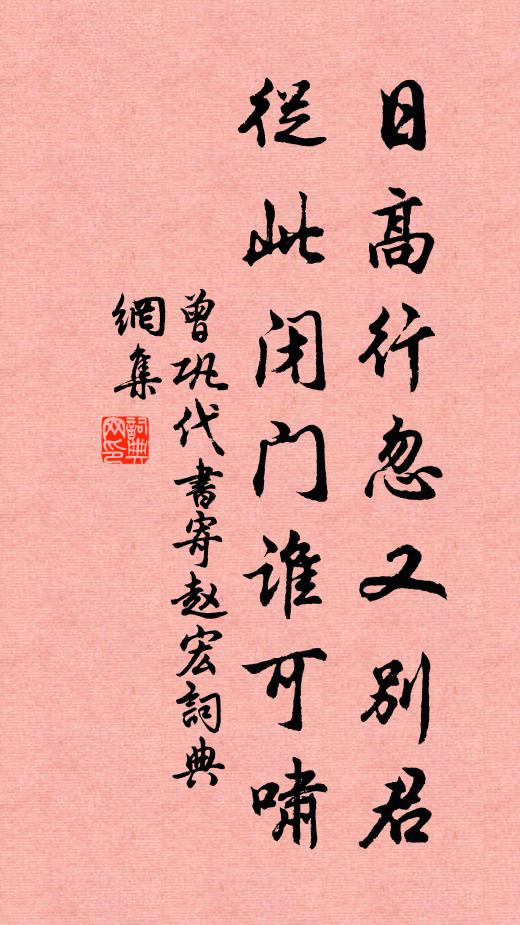 日高行忽又别君
從此闭门谁可嘯
曾巩代書寄赵宏詞典
網集
詞典
网印